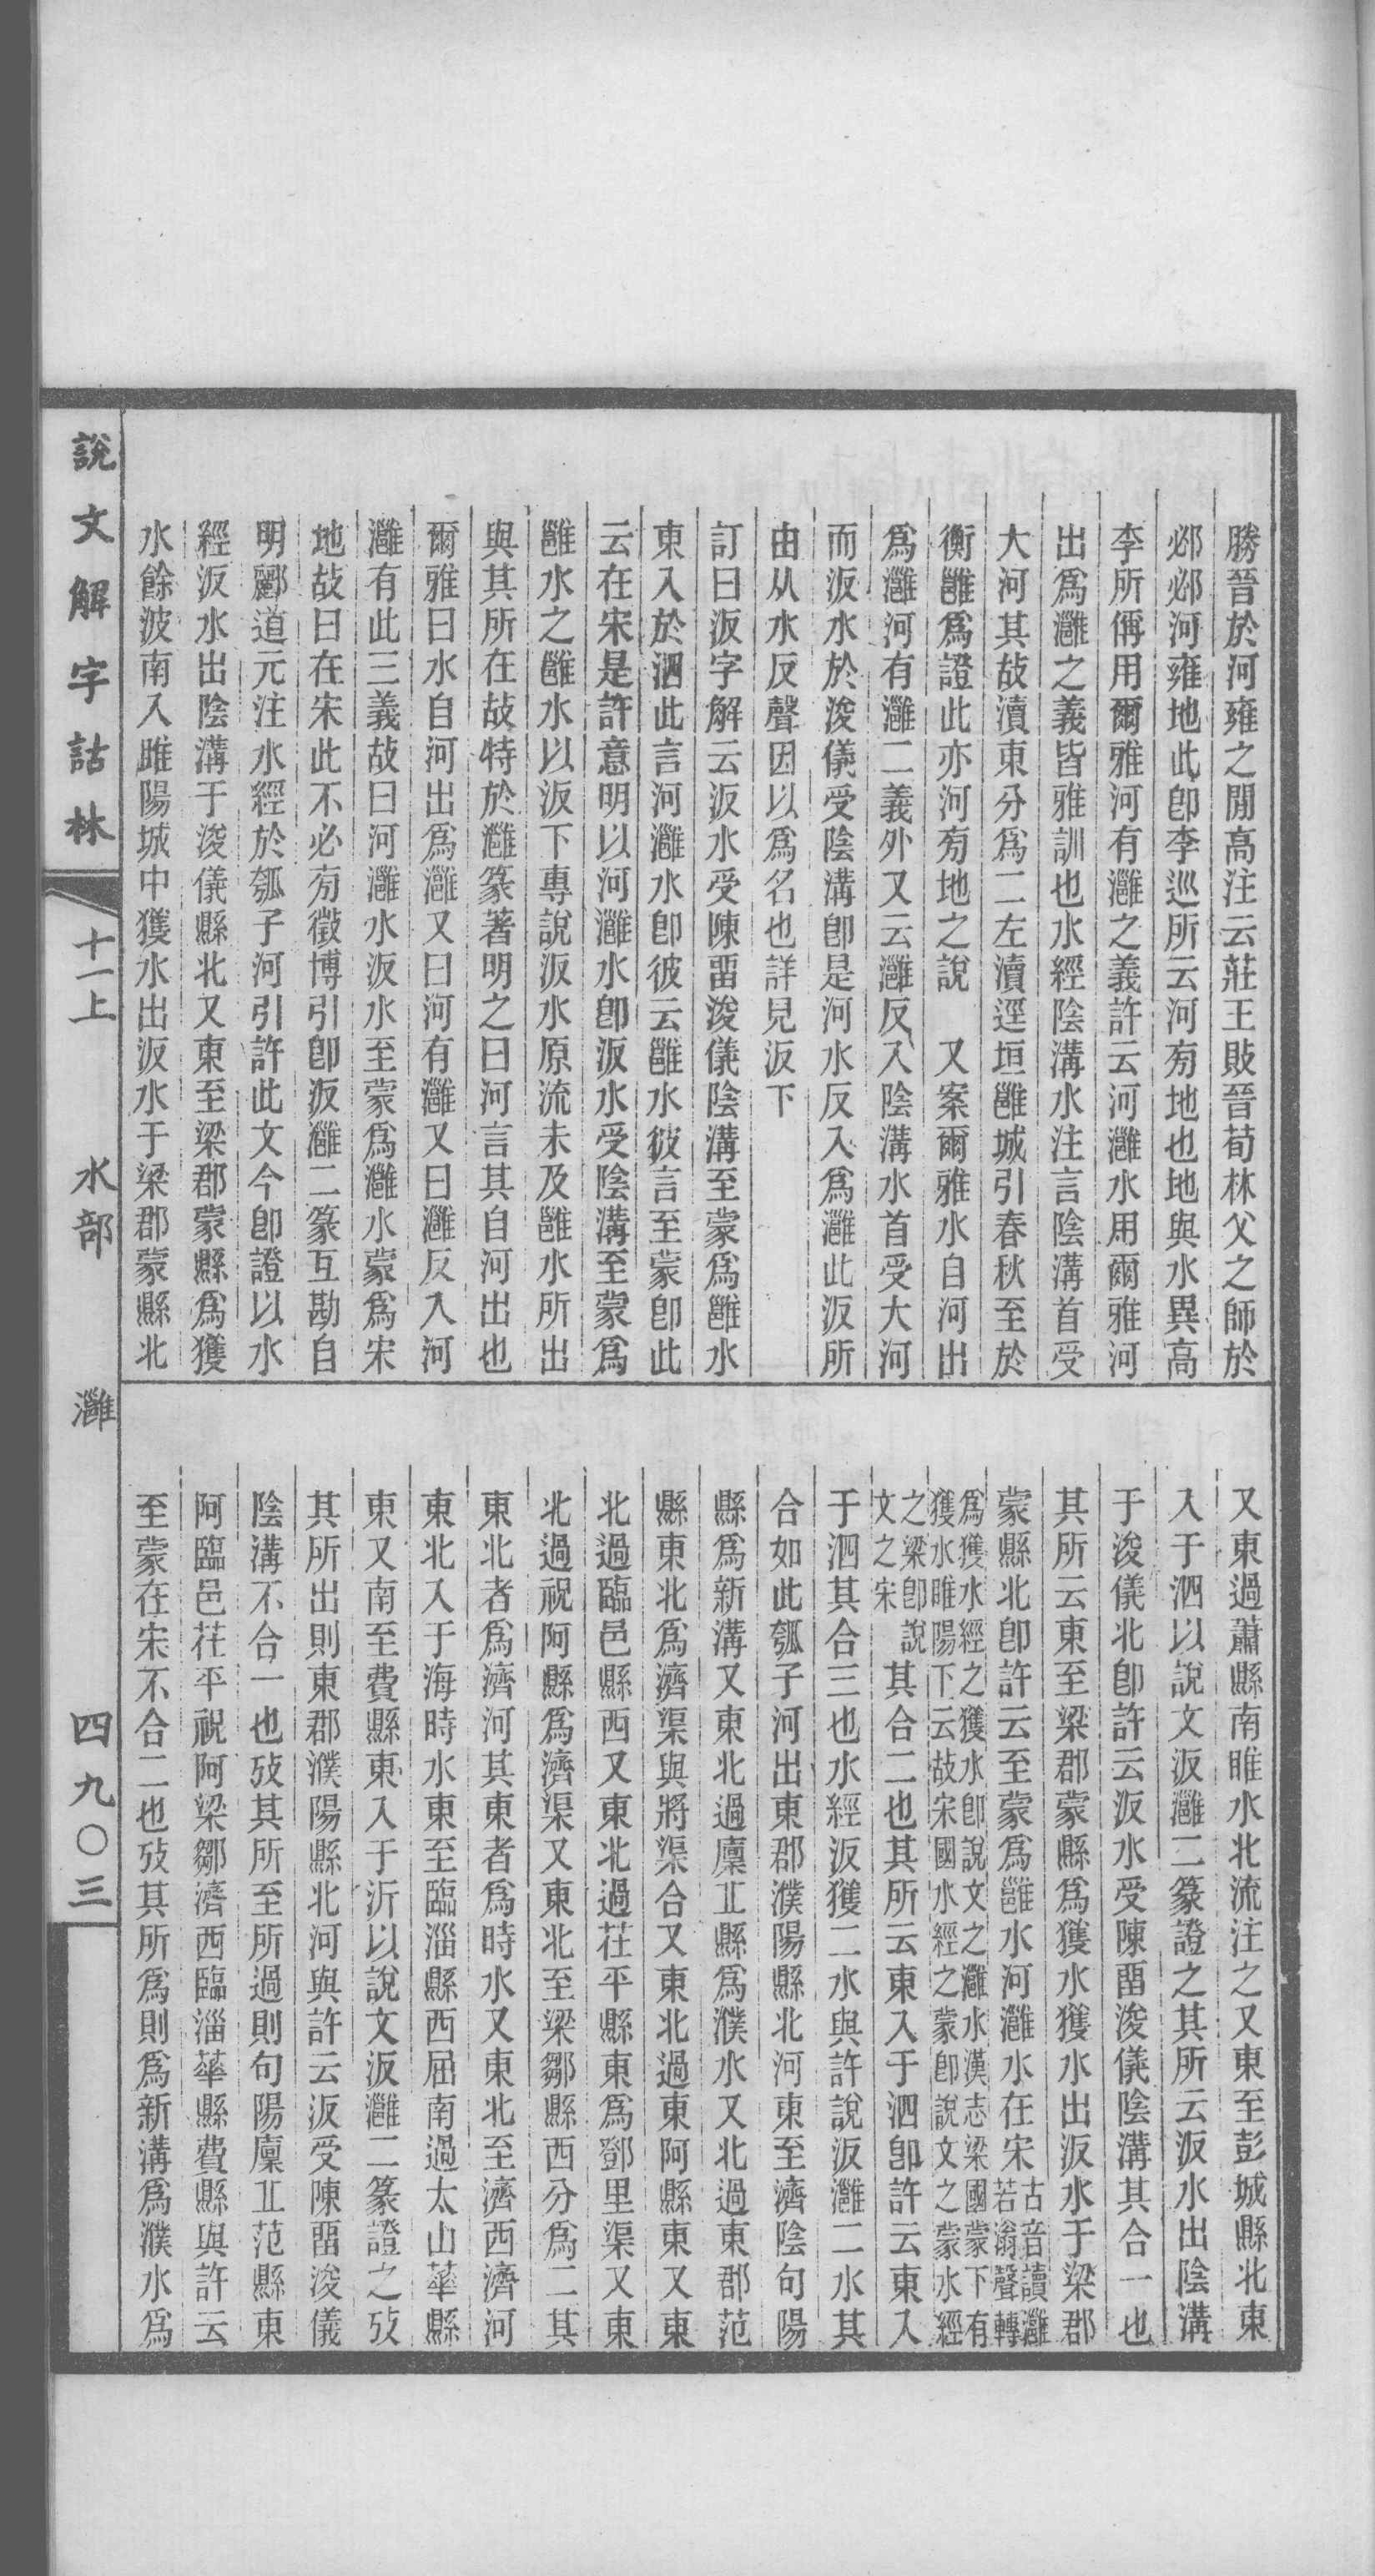 勝晉於河雍之閒高注云莊王敗晉荀林父之師於
邲邲河雍地此卽李巡所云河旁地也地與水異高
李所偁用爾雅河有灉之義許云河灉水用爾雅河
出爲灉之義皆雅訓也水經陰溝水注言陰溝首受
大河其故瀆東分爲二左瀆逕垣雝城引春秋至於
衡雝爲證此亦河旁地之說　又案爾雅水自河出
爲灉河有灉二義外又云灉反入陰溝水首受大河
而汳水於浚儀受陰溝卽是河水反入爲灉此汳所
由从水反聲因以爲名也詳見汳下
訂曰汳字解云汳水受陳畱浚儀陰溝至蒙爲雝水
東入於泗此言河灉水卽彼云雝水彼言至蒙卽此
云在宋是許意明以河灉水卽汳水受陰溝至蒙爲
雝水之雝水以汳下專說汳水原流未及雝水所出
與其所在故特於灉篆著明之曰河言其自河出也
爾雅曰水自河出爲灉又曰河有灉又曰灉反入河
灉有此三義故曰河灉水汳水至蒙爲灉水蒙爲宋
地故曰在宋此不必旁徵博引卽汳灉二篆互勘自
明酈道元注水經於瓠子河引許此文今卽證以水
經汳水出陰溝于浚儀縣北又東至梁郡蒙縣爲獲
水餘波南入雎陽城中獲水出汳水于梁郡蒙縣北
又東過蕭縣南睢水北流注之又東至彭城縣北東
入于泗以說文汳灉二篆證之其所云汳水出陰溝
于浚儀北卽許云汳水受陳畱浚儀陰溝其合一也
其所云東至梁郡蒙縣爲獲水獲水出汳水于梁郡
蒙縣北卽許云至蒙爲雝水河灉水在宋古音讀灉若滃聲轉
爲獲水經之獲水卽說文之灉水漢志梁國蒙下有獲水睢陽下云故宋國水經之蒙卽說文之蒙水經
之梁卽說文之宋其合二也其所云東入于泗卽許云東入
于泗其合三也水經汳獲二水與許說汳灉二水其
合如此瓠子河出東郡濮陽縣北河東至濟陰句陽
縣爲新溝又東北過廩丘縣爲濮水又北過東郡范
縣東北爲濟渠與將渠合又東北過東阿縣東又東
北過臨邑縣西又東北過茌平縣東爲鄧里渠又東
北過祝阿縣爲濟渠又東北至梁鄒縣西分爲二其
東北者爲濟河其東者爲時水又東北至濟西濟河
東北入于海時水東至臨淄縣西屈南過太山華縣
東又南至費縣東入于沂以說文汳灉二篆證之攷
其所出則東郡濮陽縣北河與許云汳受陳畱浚儀
陰溝不合一也攷其所至所過則句陽廩丘范縣東
阿臨邑茌平祝阿梁鄒濟西臨淄華縣費縣與許云
至蒙在宋不合二也攷其所爲則爲新溝爲濮水爲
說文解字詁林
十一上　水部　灉　四九〇三